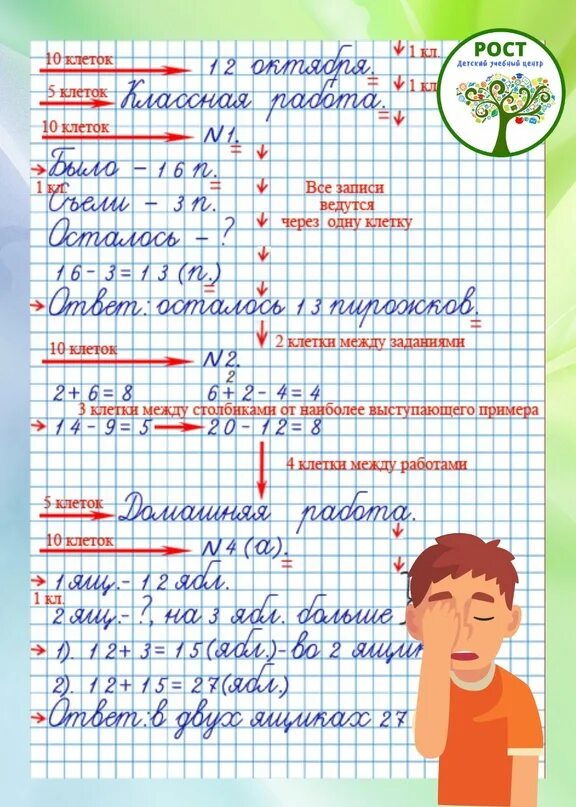 РОСТ
Детский учебный центр
10 клеток 12 октября. 1 кл.
5 клеток Классная работа. 1 кл.
10 клеток N1.
Было – 16 п.
1 кл.
Съели – 3 п.
Все записи
ведутся
через одну клетку
Осталось – ?
16 – 3 = 13 (п.)
Ответ: осталось 13 пирожков.
2 клетки между заданиями
10 клеток N2.
2
2 + 6 = 8 6 + 2 – 4 = 4
3 клетки между столбиками от наиболее выступающего примера
14 – 9 = 5 20 – 12 = 8
4 клетки между работами
5 клеток Домашняя работа.
10 клеток N4(а).
1 ящ. – 12 ябл.
1 кл.
2 ящ. – ?, на 3 ябл. больше
1). 12 + 3 = 15 (ябл.) – во 2 ящик
2). 12 + 15 = 27 (ябл.)
Ответ: в двух ящиках 27